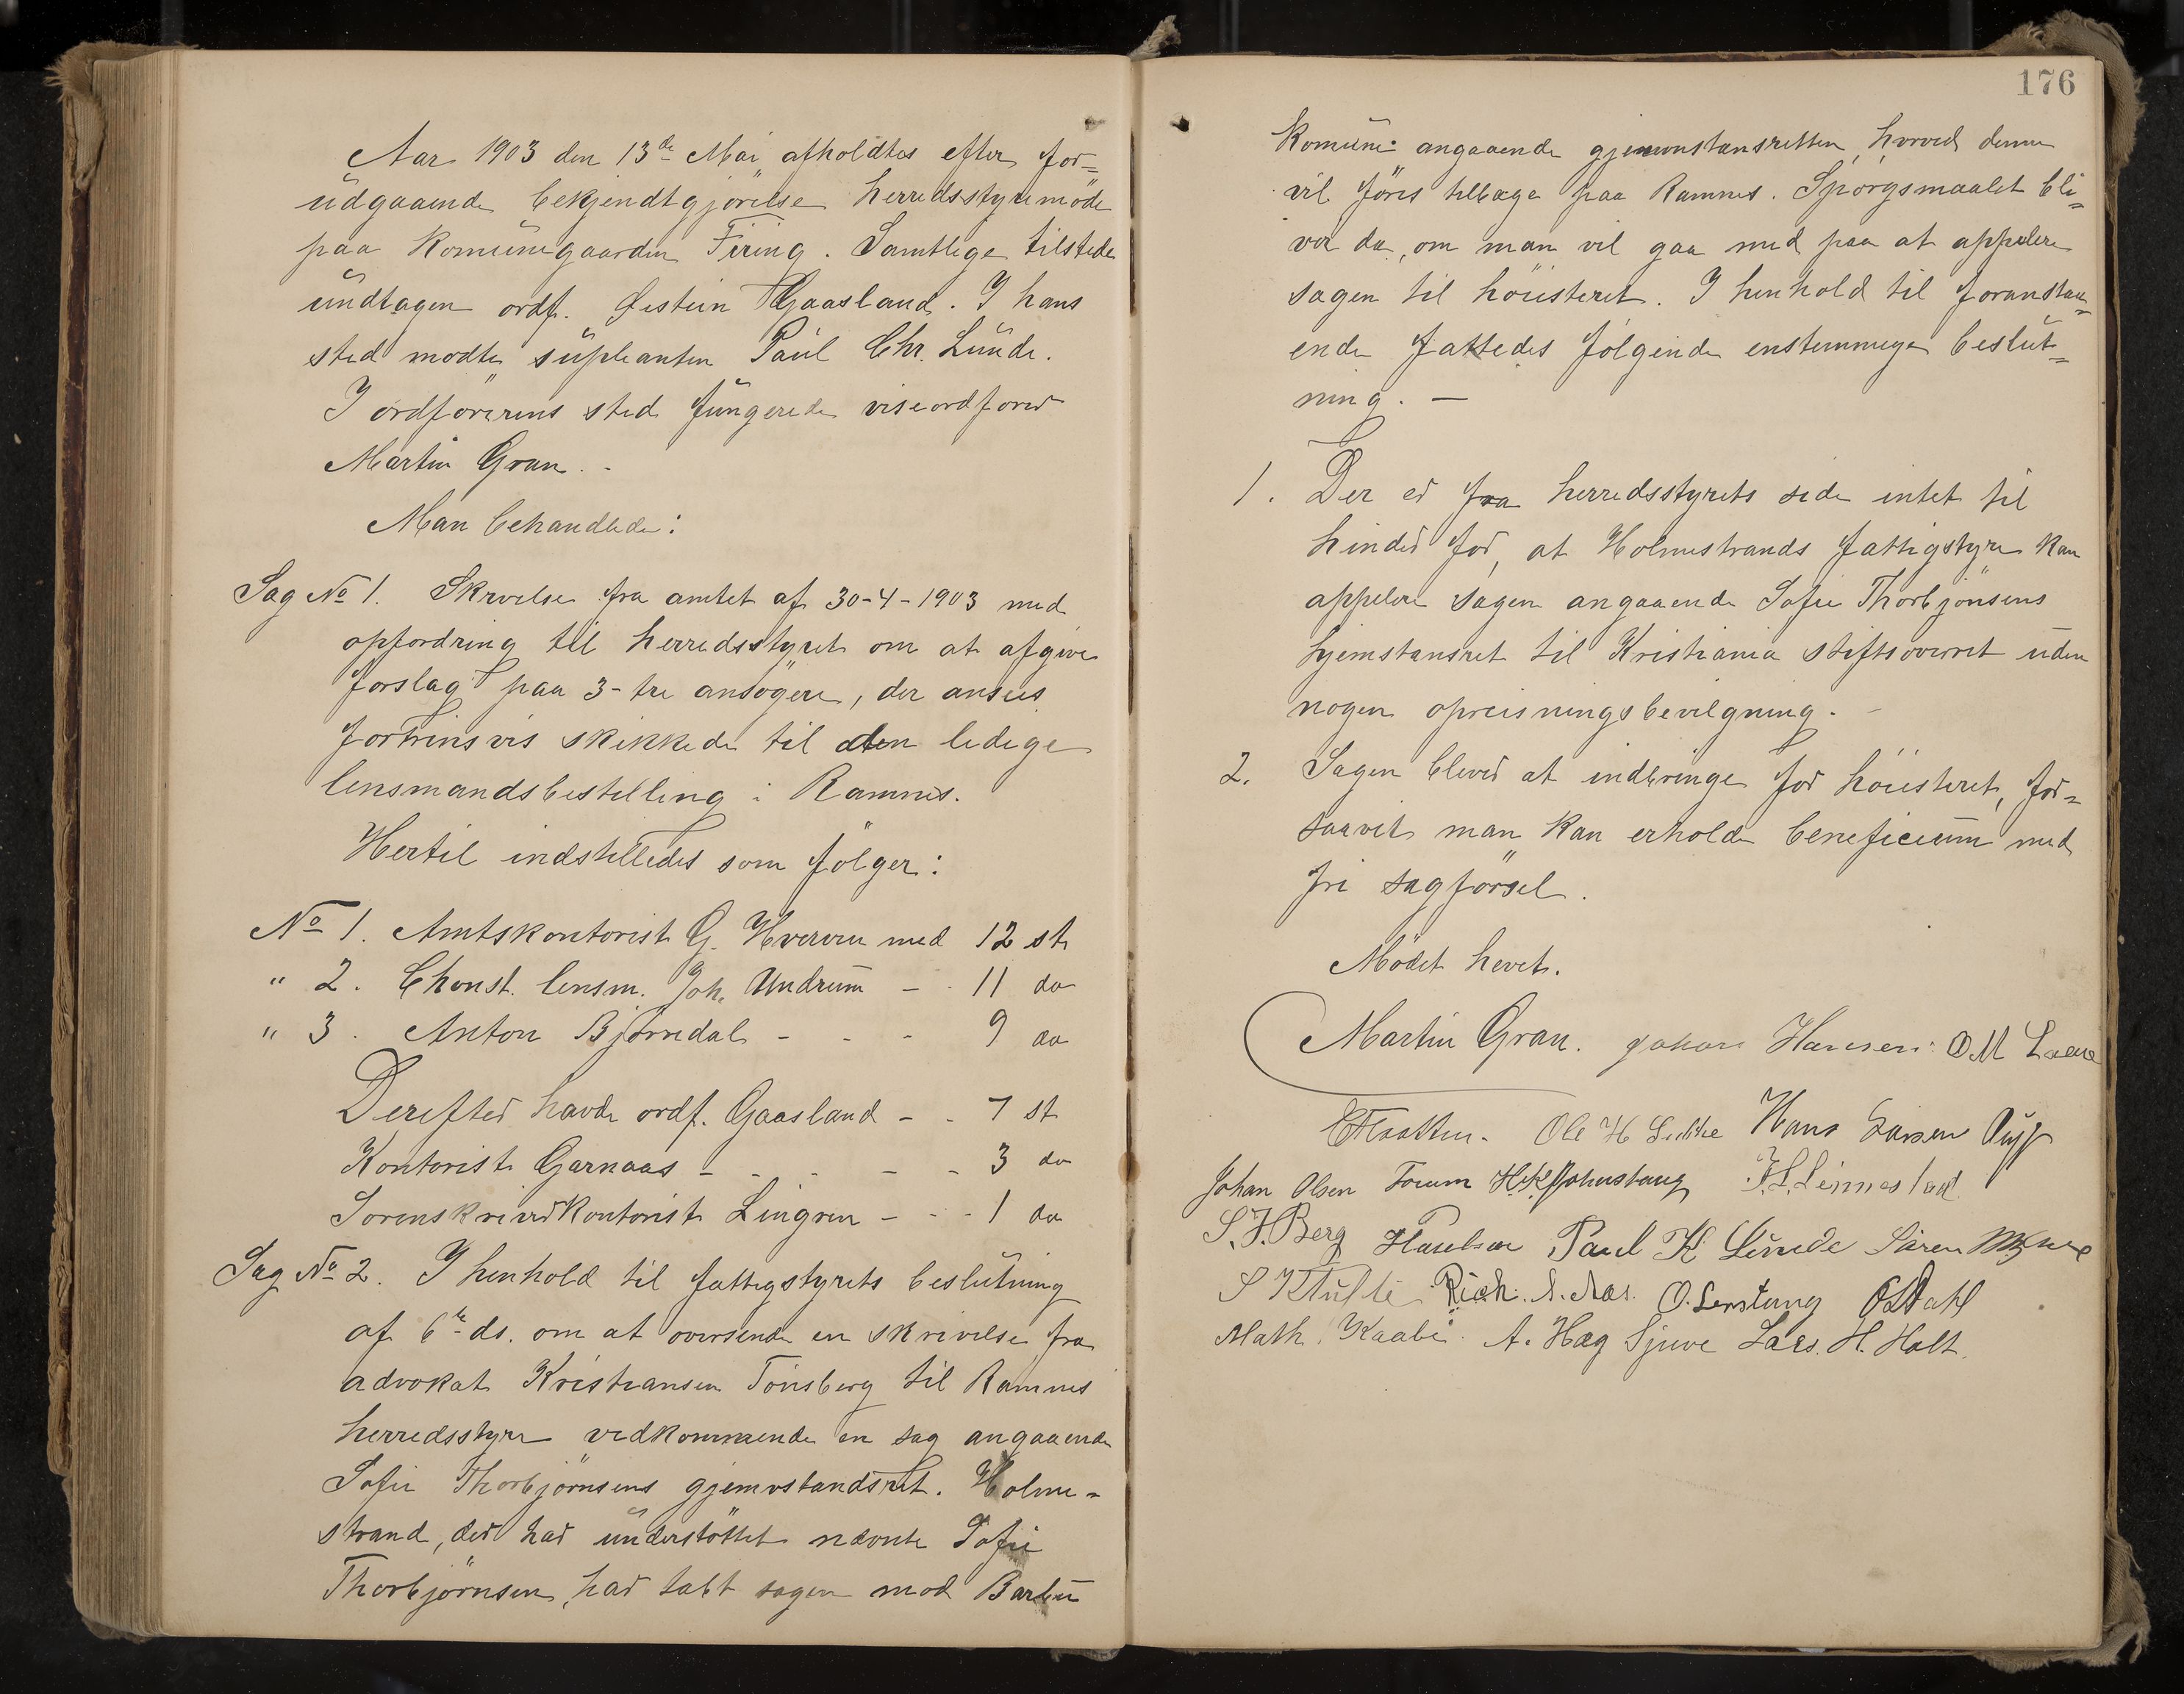 Aar 1903 den 13de Mai afholdtes efter for=
udgaaende bekjendtgjørelse herredsstyremøde
paa komunegaarden Firing. Samtlige tilstede
undtagen ordf. Østein Gaasland. I hans
sted mødte supleanten Paul Chr. Lunde.
I ordførerens sted fungerede viseordfører
Martin Gran. -
Man behandlede:
Sag No 1. Skrivelse fra amtet af 30-4-1903 med
opfordring til herredsstyret om at afgive
forslag paa 3-tre ansøgere, der ansees
fortrinsvis skikkede til den ledige
lensmandsbestilling i Ramnes.
Hertil indstilledes som følger:
No 1. Amtskontorist G. Hverven med 12 st
" 2. Const. lensm. Joh. Undrum - - 11 do
" 3. Anton Bjørndal - - - 9 do
Derefter havde ordf. Gaasland - - 7 st
Kontorist Garnaas - - - - - 3 do
Sorenskriverkontorist Lingren - - - 1 do
Sag No 2. I henhold til fattigstyrets beslutning
af 6te ds. om at oversende en skrivelse fra
advokat Kristiansen Tønsberg til Ramnes
herredsstyre vedkommende en sag angaaende
Sofie Thorbjørnsens gjemstandsret. Holme=
strand, der har understøttet nævnte Sofie
Thorbjørnsen, har tabt sagen mod Barbu
176
komune angaaende gjemstansretten, hvorved denne
vil føres tilbage paa Ramnes. Spørgsmaalet bli=
ver da, om man vil gaa med paa at appelere
sagen til høiesteret. I henhold til foranstaa=
ende fattedes følgende enstemmige beslut=
ning. —
1. Der er fra herredsstyrets side intet til
hinder for, at Holmestrands fattigstyre kan
appelere sagen angaaende Sofie Thorbjønsens
hjemstansret til Kristiania stiftsoverret uden
nogen opreisningsbevilgning. -
2. Sagen bliver at indbringe for høiesteret, for=
saavit man kan erholde beneficium med
fri sagførsel.
Mødet hevet.
Martin Gran. Johan Hansen O M
Ole H Hans Larsen
Johan Olsen Forum H.K. Johnstang F.L. Linnestad
S. J. Berg Paul K Lunde Søren
S Rich. O. Serstang Dahl
Math. Kaabi. A. Hæg Sjuve Lars. H. Holt.